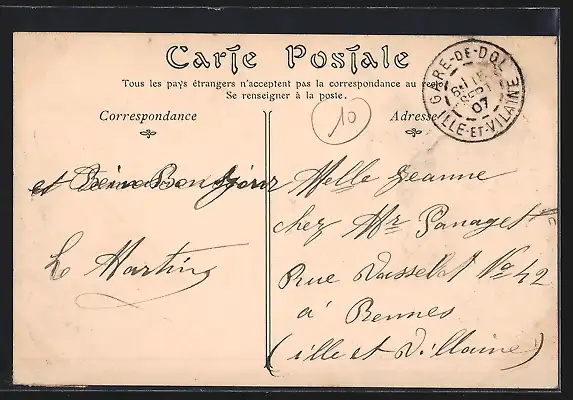 Carte Postale
Tous les pays étrangers n'acceptent pas la correspondance au recto
Se renseigner à la poste.
Correspondance
Adresse
10
GARE-DE-DOL
07
ILLE-ET-VILAINE
et Bonjour
L Martin
Melle Jeanne
chez Mr Panaget
Rue Vasselot No 42
à Rennes
(ille et Villaine)